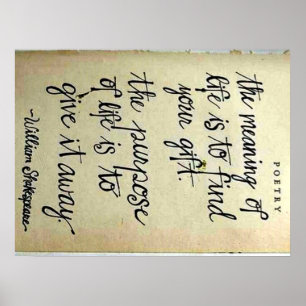 POETRY
the meaning of
life is to find
your gift.
the purpose
of life is to
give it away.
~William Shakespeare